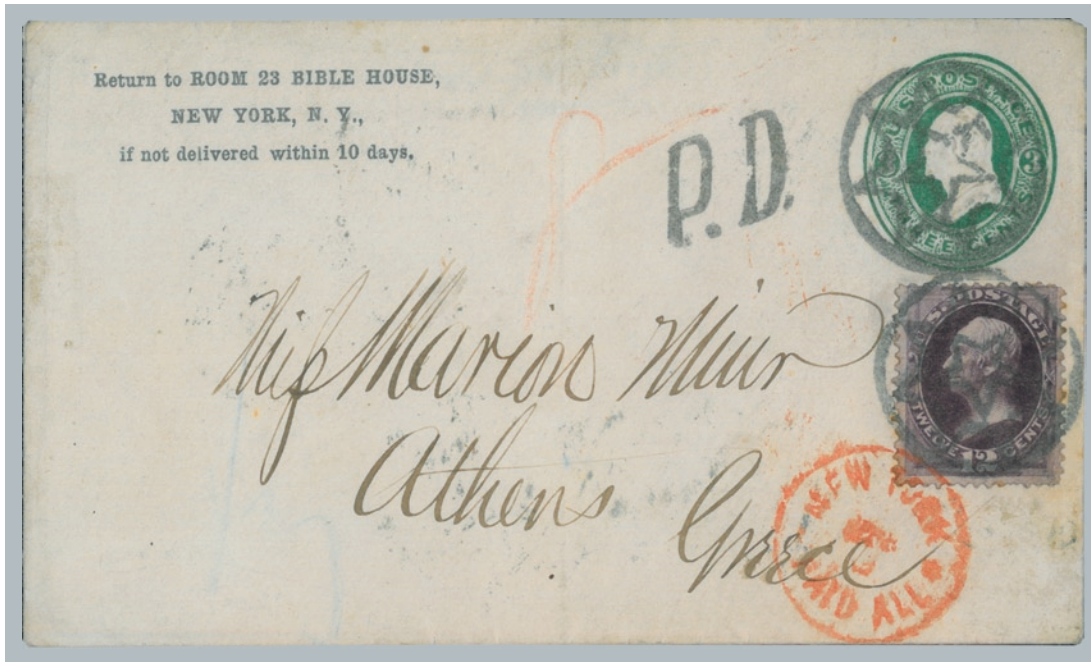 Return to ROOM 23 BIBLE HOUSE,
NEW YORK, N. Y.,
if not delivered within 10 days.
P.D.
U.S. POSTAGE
3 3
THREE CENTS
U.S. POSTAGE
TWELVE 12 CENTS
Miss Marion Muir
Athens
Greece
NEW YORK
PAID ALL